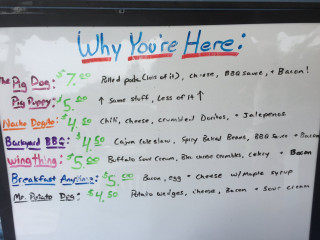 Why You're Here:
The Pig Dog: $7.00 Pulled pork (lots of it), cheese, BBQ sauce, + Bacon!
Pig Puppy: $5.00 ↑ Same stuff, Less of it ↑
Nacho Dogito: $4.50 Chili, cheese, crumbled Doritos, + Jalapenos
Backyard BBQ: $4.50 Cajun Coleslaw, Spicy Baked Beans, BBQ Sauce + Bacon
wing thing: $5.00 Buffalo Sour Cream, Bleu cheese crumbles, Celery + Bacon
Breakfast Anytime: $5.00 Bacon, egg + Cheese w/ Maple syrup
Mr. Potato Dog: $4.50 Potato wedges, cheese, Bacon + sour cream